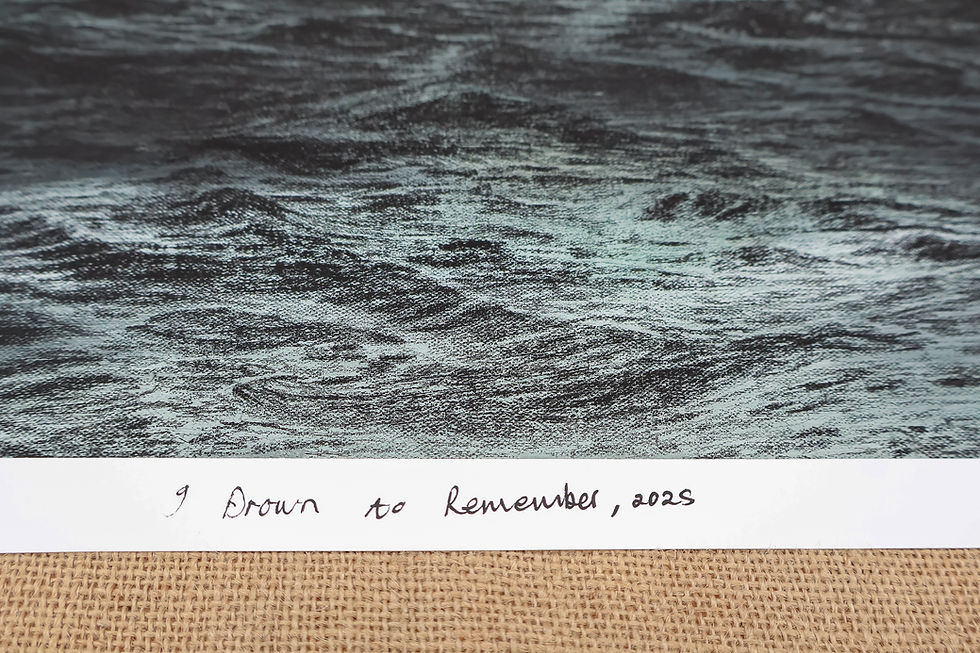 I Drown to Remember, 2025